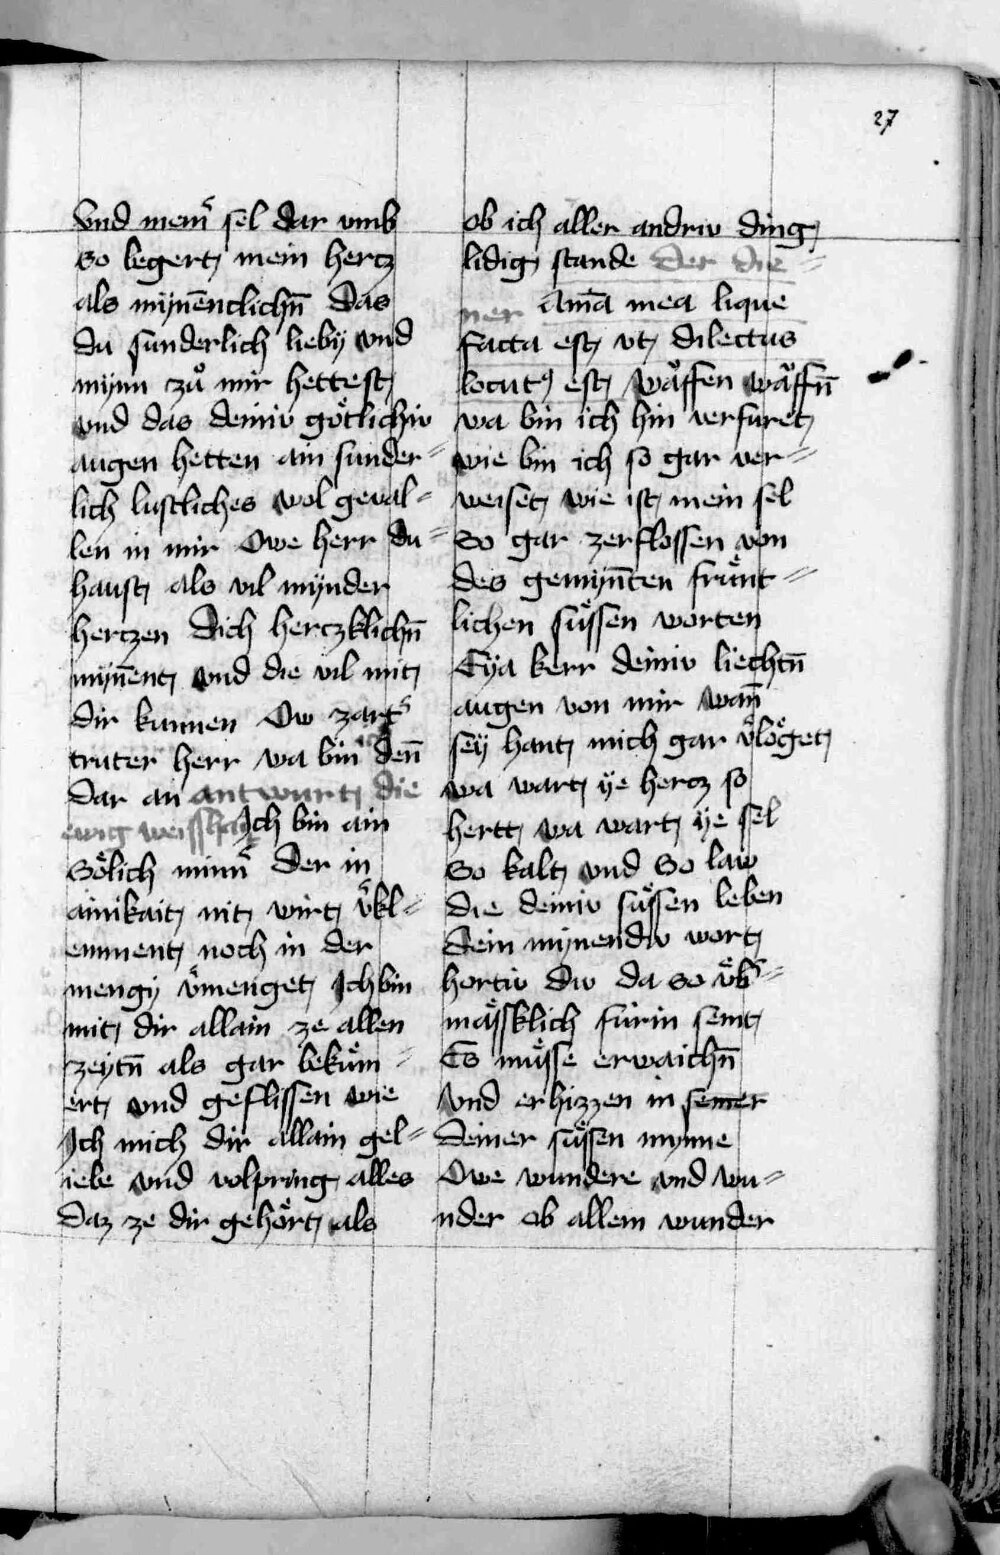 27
vnd mein̄ sel dar vmb
so begert mein hercz
als mynēnclichn̄ das
du sunderlich lieby vnd
mynn zuͦ mir hettest
vnd das deiniv goͤtlichiv
augen hetten ain sunder=
lich lustliches wol geual=
len in mir Owe herr du=
haust als vil mynder
herczen dich herczklichn̄
myn̄ent vnd die vil mit
dir kunnen Ow zart
truter herr wa bin den̄
dar an antwurt die
ewig weisshait Ich bin ain
Soͤlich minn̄ der in
ainikait nit wirt v̄kl=
emment noch in der
mengy v̄menget Ich bin
mit dir allain ze allen
zeytn̄ als gar bekuͤm=
ert vnd geflissen wie
Ich mich dir allain gel=
iebe vnd volpring alles
daz ze dir gehoͤrt als
ob ich aller andriv ding
lidig stande der die=
ner Aīa mea lique
facta est vt dilectus
locutꝰ est waͤffen waͤffn̄
wa bin ich hin verfuret
wie bin ich so gar ver=
weiset wie ist mein sel
So gar zerflossen von
des gemyn̄ten fruͤnt=
lichen suͤssen worten
Eya kerr deiniv liechtn̄
augen von mir wan̄
sey hant mich gar v̄loͤget
wa wart ye hercz so
hertt wa wart ye sel
So kalt vnd So law
die deiniv suͤssen leben
dein mynendiv wort
hortiv div da so v̈b̄=
maͤssklich fúrin sent
Es muͤsse erwaichn̄
vnd erhizzen in semer
deiner suͤssen mynne
Owe wundere vnd wu=
nder ob allem wunder